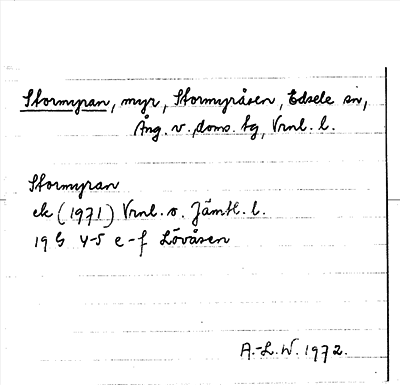 Stormyran, myr, Stormyråsen, Edsele sn,
Ång. v. doms. tg, Vrnl. l.
Stormyran
ek (1971) Vrnl. o. Jämtl. l.
19 G 4-5 e-f Lövåsen
A.-L.W. 1972.